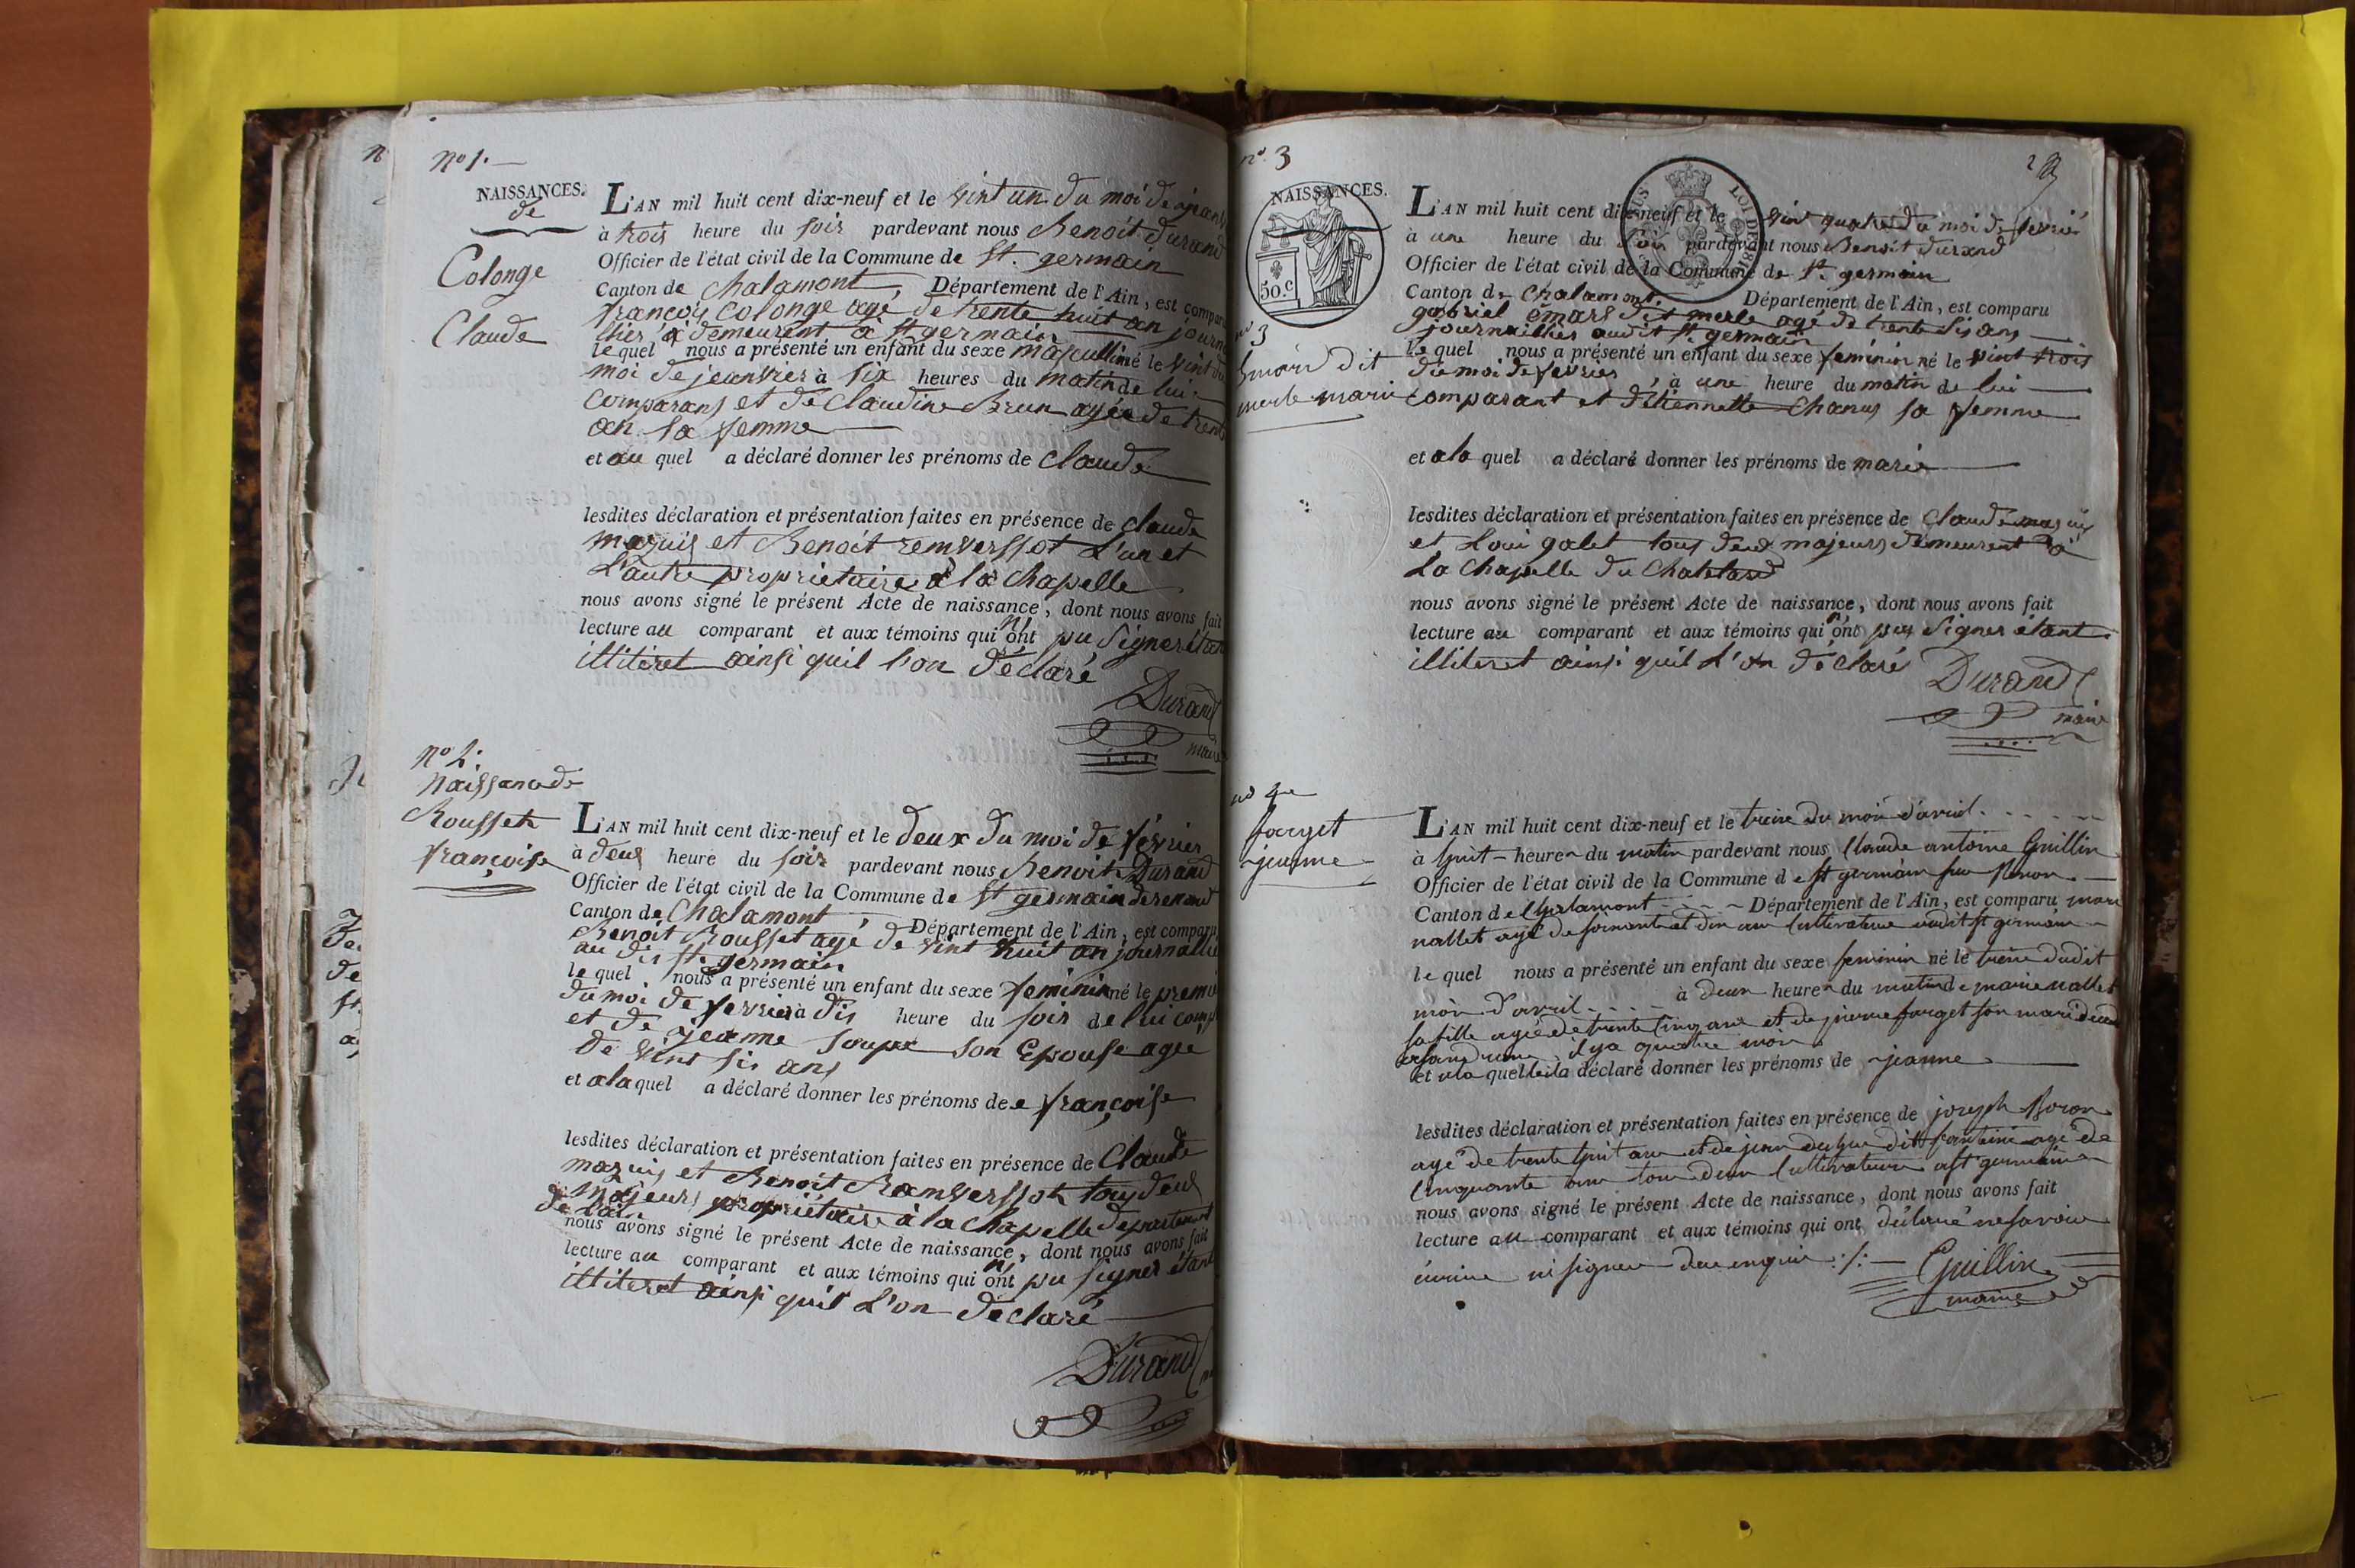 nº 1.
NAISSANCES.
de
Colonge
Claude
L'AN mil huit cent dix-neuf et le vint un du moi de
à trois heure du soir pardevant nous Benoit durand
Officier de l'état civil de la Commune de St. germain
Canton de Chalamont, Département de l'Ain, est comparu
françois Colonge agé de trente huit an journ
llier a demeurent à St germain
lequel nous a présenté un enfant du sexe mascullin né le vint du
moi de jeanvier à six heures du matin de lui
comparans et de Claudine Brun agée de trente
an sa femme
et au quel a déclaré donner les prénoms de claude
lesdites déclaration et présentation faites en présence de claude
et Benoit remverssot L'un et
L'autre propriétaire a la Chapelle
nous avons signé le présent Acte de naissance, dont nous avons fait
lecture au comparant et aux témoins qui n'ont pu Signer étan
illiteret ainsi quil l'on déclaré
Durand
maire
nº 2.
Naissance de
Rousset
françoise
L'AN mil huit cent dix-neuf et le deux du moi de février
à deux heure du soir pardevant nous Benoit Durand
Officier de l'état civil de la Commune de St germain de renond
Canton de Chalamont, Département de l'Ain, est comparu
Benoit Rousset agé de vint huit an journallie
au dis St. germain
lequel nous a présenté un enfant du sexe feminin né le premi
du moi de fevrier à dis heure du soir de lui comp
et de jeanne soupe son Epouse agee
de vint sis ans
et a la quel a déclaré donner les prénoms de françoise
lesdites déclaration et présentation faites en présence de Claude
et Benoit Ramverssot tous deux
majeurs propriétaire à la Chapelle departement
de l'ain
nous avons signé le présent Acte de naissance, dont nous avons fait
lecture au comparant et aux témoins qui n'ont pu signer étant
illiteret ainsi quil L'on declaré
Durand
nº. 3
NAISSANCES.
50.c
nº 3
émard dit
merle marie
L'AN mil huit cent dix-neuf et le vint quatre du moi de fevrié
à une heure du soir pardevant nous Benoit durand
Officier de l'état civil de la Commune de St. germain
Canton de Chalamont. Département de l'Ain, est comparu
gabriel émard dit merle agé de trente sis ans
journallier audit St. germain
le quel nous a présenté un enfant du sexe feminin né le vint trois
du moi de fevrier, à une heure du matin de lui
comparant et d'étiennette Chanus sa femme
et a la quel a déclaré donner les prénoms de marie
lesdites déclaration et présentation faites en présence de Claude
et Loui galet tous deux majeurs demeurent à
La Chapelle du Chatelard
nous avons signé le présent Acte de naissance, dont nous avons fait
lecture au comparant et aux témoins qui n'ont pus Signer étant
illiteret ainsi quil L'on déclaré
Durand
maire
nº 4
farget
jeanne
L'AN mil huit cent dix-neuf et le treize du mois d'avril
à huit heures du matin pardevant nous Claude antoine Guillin
Officier de l'état civil de la Commune de St germain sur Renon
Canton de Chalamont Département de l'Ain, est comparu
nallet agé de soixante et dix ans cultivateur audit St germain
lequel nous a présenté un enfant du sexe feminin né le treize dudit
mois d'avril à deux heures du matin de marie nallet
sa fille agée de trente cinq ans et de pierre farget son mari
il y a quatre mois
et a la quelle il a déclaré donner les prénoms de jeanne
lesdites déclaration et présentation faites en présence de joseph
agé de trente huit ans et de jean dit fontaine agé de
cinquante ans tous deux cultivateurs a St germain
nous avons signé le présent Acte de naissance, dont nous avons fait
lecture au comparant et aux témoins qui ont déclaré ne savoir
écrire ni signer de ce enquis ./.
Guillin
maire